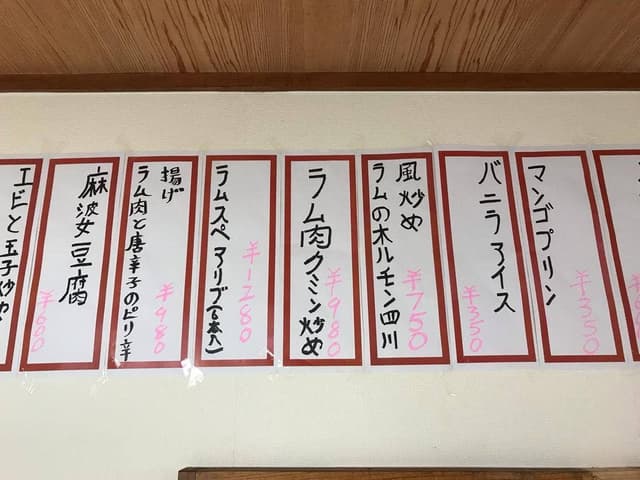 エビと玉子炒め
麻婆豆腐
¥600
ラム肉と唐辛子のピリ辛
揚げ
¥980
ラムスペアリブ(6本入)
¥1280
ラム肉クミン炒め
¥980
ラムのホルモン四川
風炒め
¥750
バニラアイス
¥350
マンゴプリン
¥350